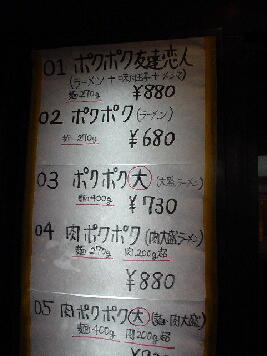 01 ポクポク友達恋人
(ラーメン+味付玉子+メンマ)
麺270g ¥880
02 ポクポク(ラーメン)
麺270g
¥680
03 ポクポク大(大盛ラーメン)
麺400g
¥730
04 肉ポクポク(肉大盛ラーメン)
麺270g 肉200g超
¥880
05 肉ポクポク大(麺・肉大盛)
麺400g 肉200g超